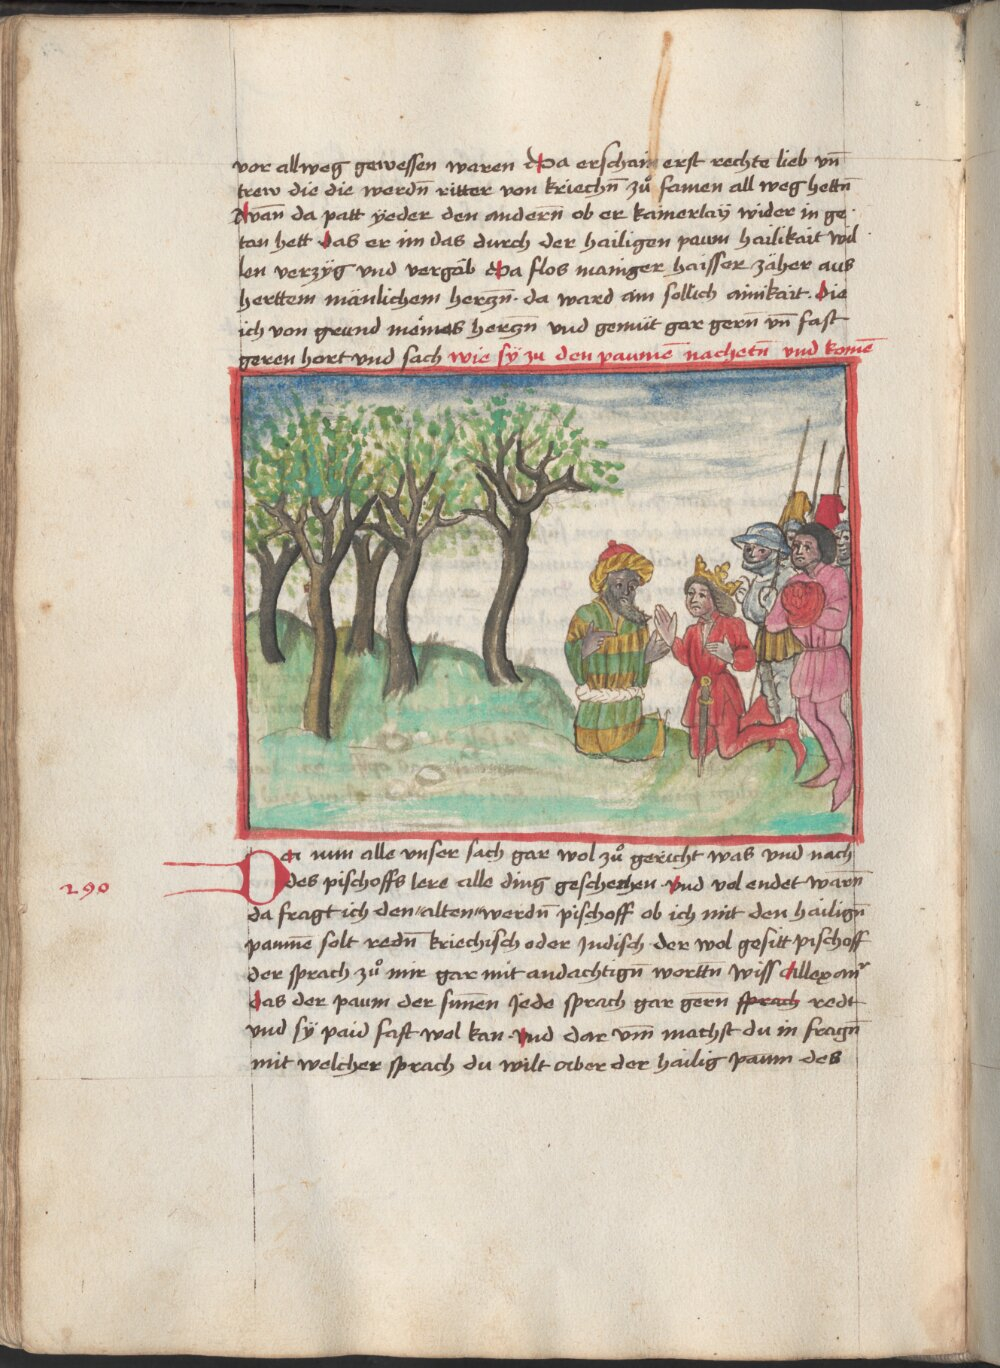 vor allweg gewessen waren Da erschain erst rechte lieb vn̄
trew die die werdn̄ ritter von kriechn̄ zů samen all weg hettn̄
Wan̄ da patt ÿeder den andern̄ ob er kainerlaÿ wider in ge
tan hett das er im das durch der hailigen paum hailikait wil
len verzÿg vnd vergäb Da flos maniger haisser zäher aus
herttem mänlichem herzn̄. da ward ain sollich ainikait. Die
ich von grund meines herzn̄ vnd gemüt gar gern̄ vn̄ fast
geren hort vnd sach wie sÿ zu den paumē nachetn̄ vnd komē
Da nun alle vnser sach gar wol zů gericht was vnd nach
290
des pischoffs lere alle ding geschechen vnd vol endet warn̄
da fragt ich den alten werdn̄ pischoff ob ich mit den hailign̄
paumē solt redn̄ kriechisch oder Jndisch der wol gesitt pischoff
der sprach zů mir gar mit andachtign̄ worttn̄ wiss allexan͛
das der paum der sunēn Jede sprach gar gern̄ sprach redt
vnd sÿ paid fast wol kan. vnd dar vm̄ machst du in fragn̄
mit welcher sprach du wilt aber der hailig paum des